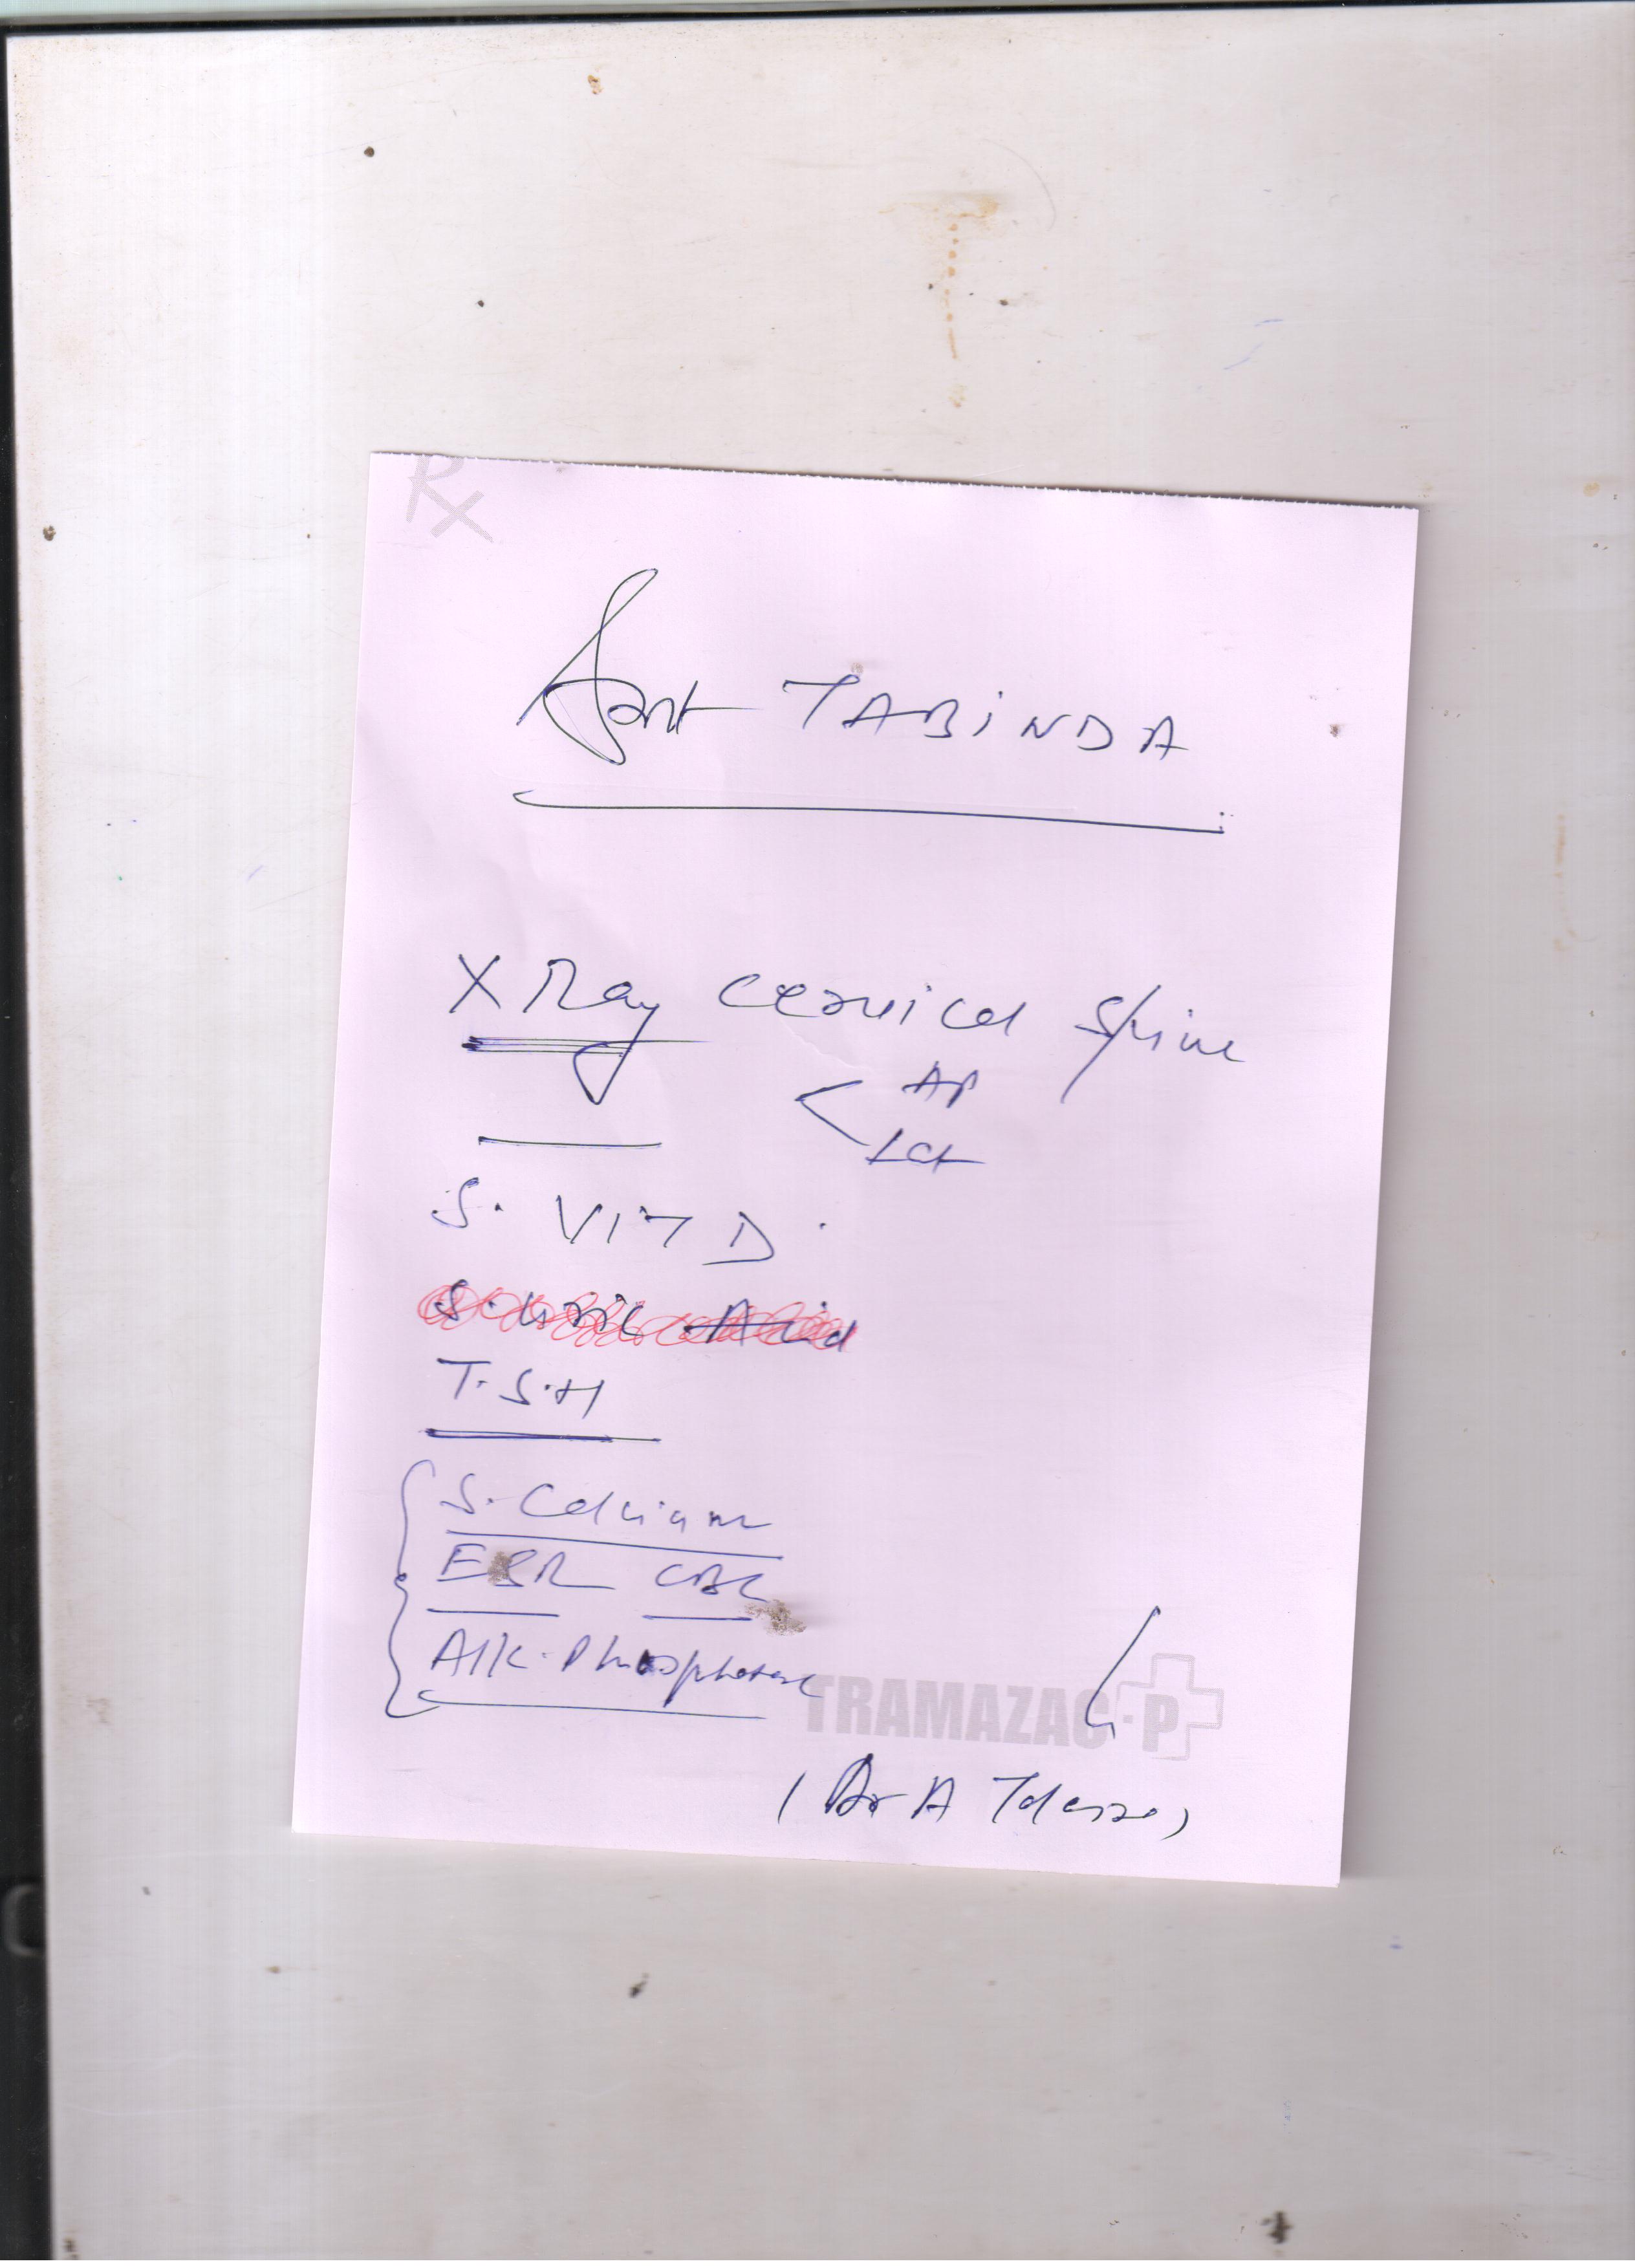 Rx
Smt TABINDA
X Ray Cervical Spine
AP
Lat
S. VIT D.
S. Uric Acid
T.S.H
S. Calcium
ESR CBC
Alk. Phosphatase
TRAMAZAC-P
(Dr A